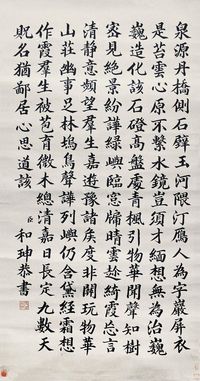 泉源丹橋側石壁玉河隈汀鴈人為字巖屏衣
是苔雲心原不繫水鏡豈須才緬想無為治巍
巍造化該石磴高盤處青楓引物華聞聲知樹
密見絕景紛譁綠嶼臨窓牖晴雲趁綺霞忘言
清靜意頻望羣生嘉遊豫諸矦度非開玩物華
山莊幽事足林塢鳥聲譁列嶼仍含黛經霜想
作霞羣生被苞育微木總清嘉日長定九數天
貺名猶鄙居心思道該
臣和珅恭書